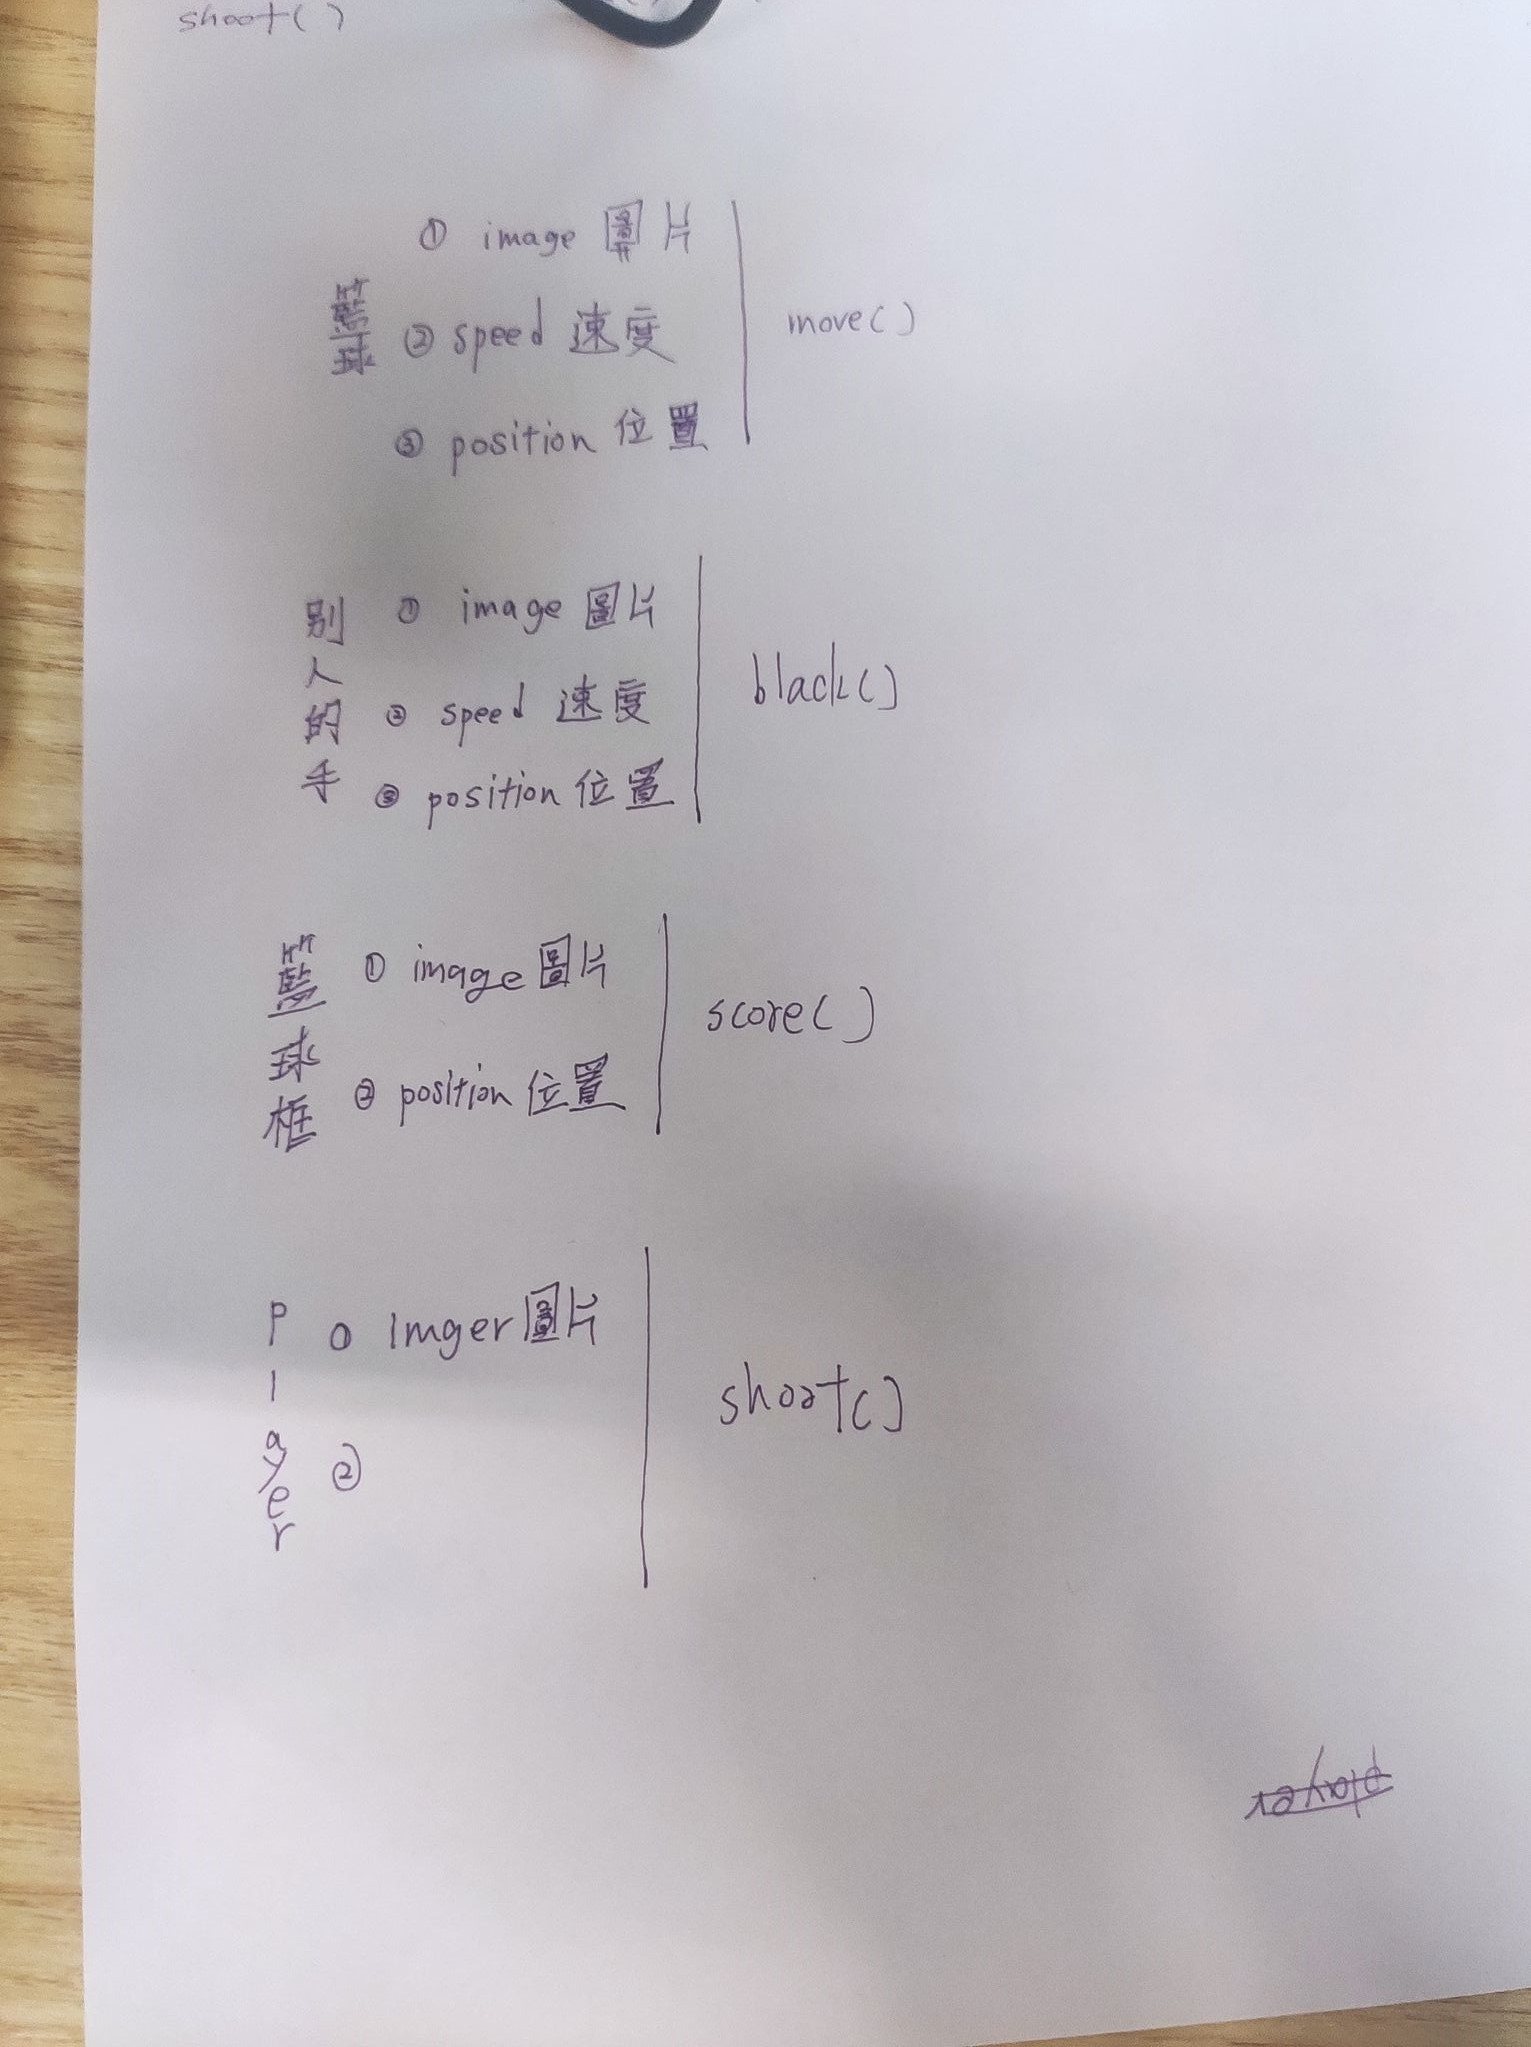 shoot()
籃球
① image 圖片
② speed 速度
③ position 位置
move()
別人的手
① image 圖片
② speed 速度
③ position 位置
black()
籃球框
① image 圖片
② position 位置
score()
player
① Imger 圖片
②
shoot()
player